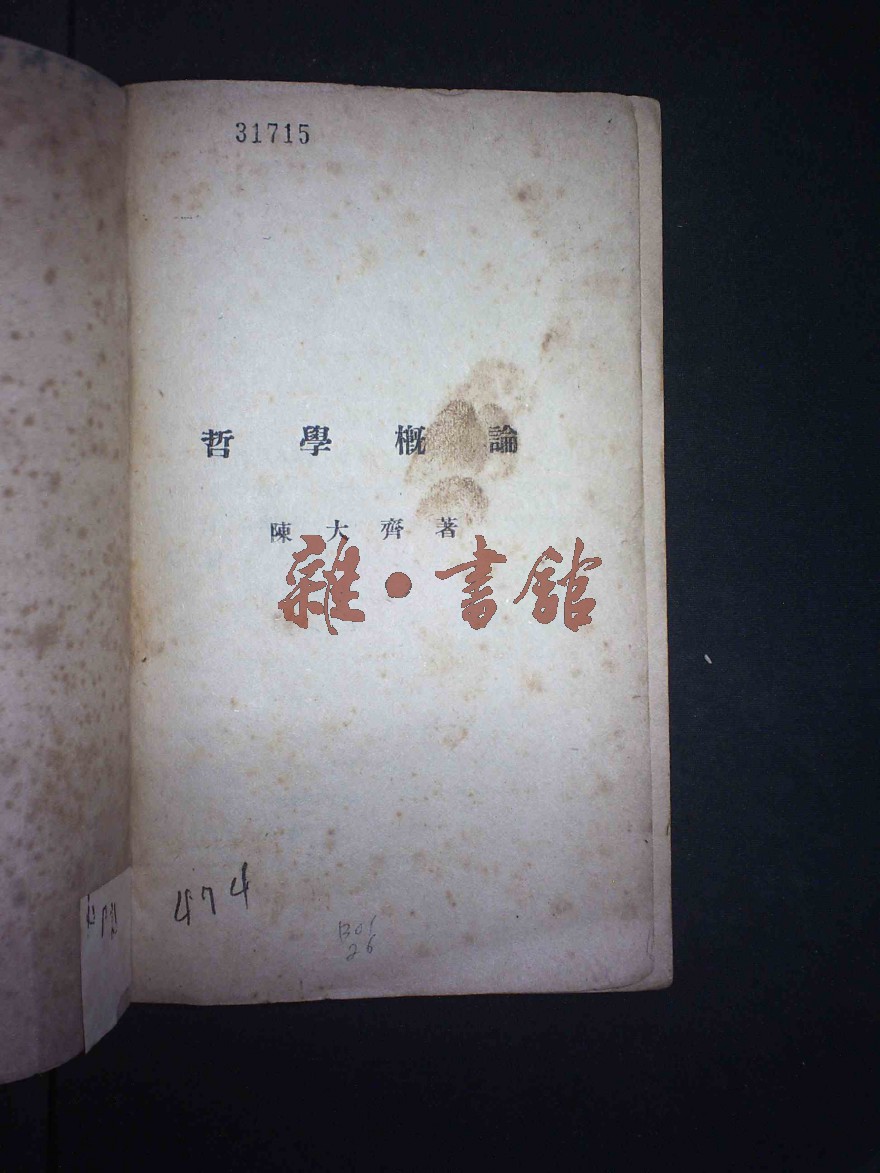 31715
哲學概論
陳大齊著
雜·書館
474
B01
26